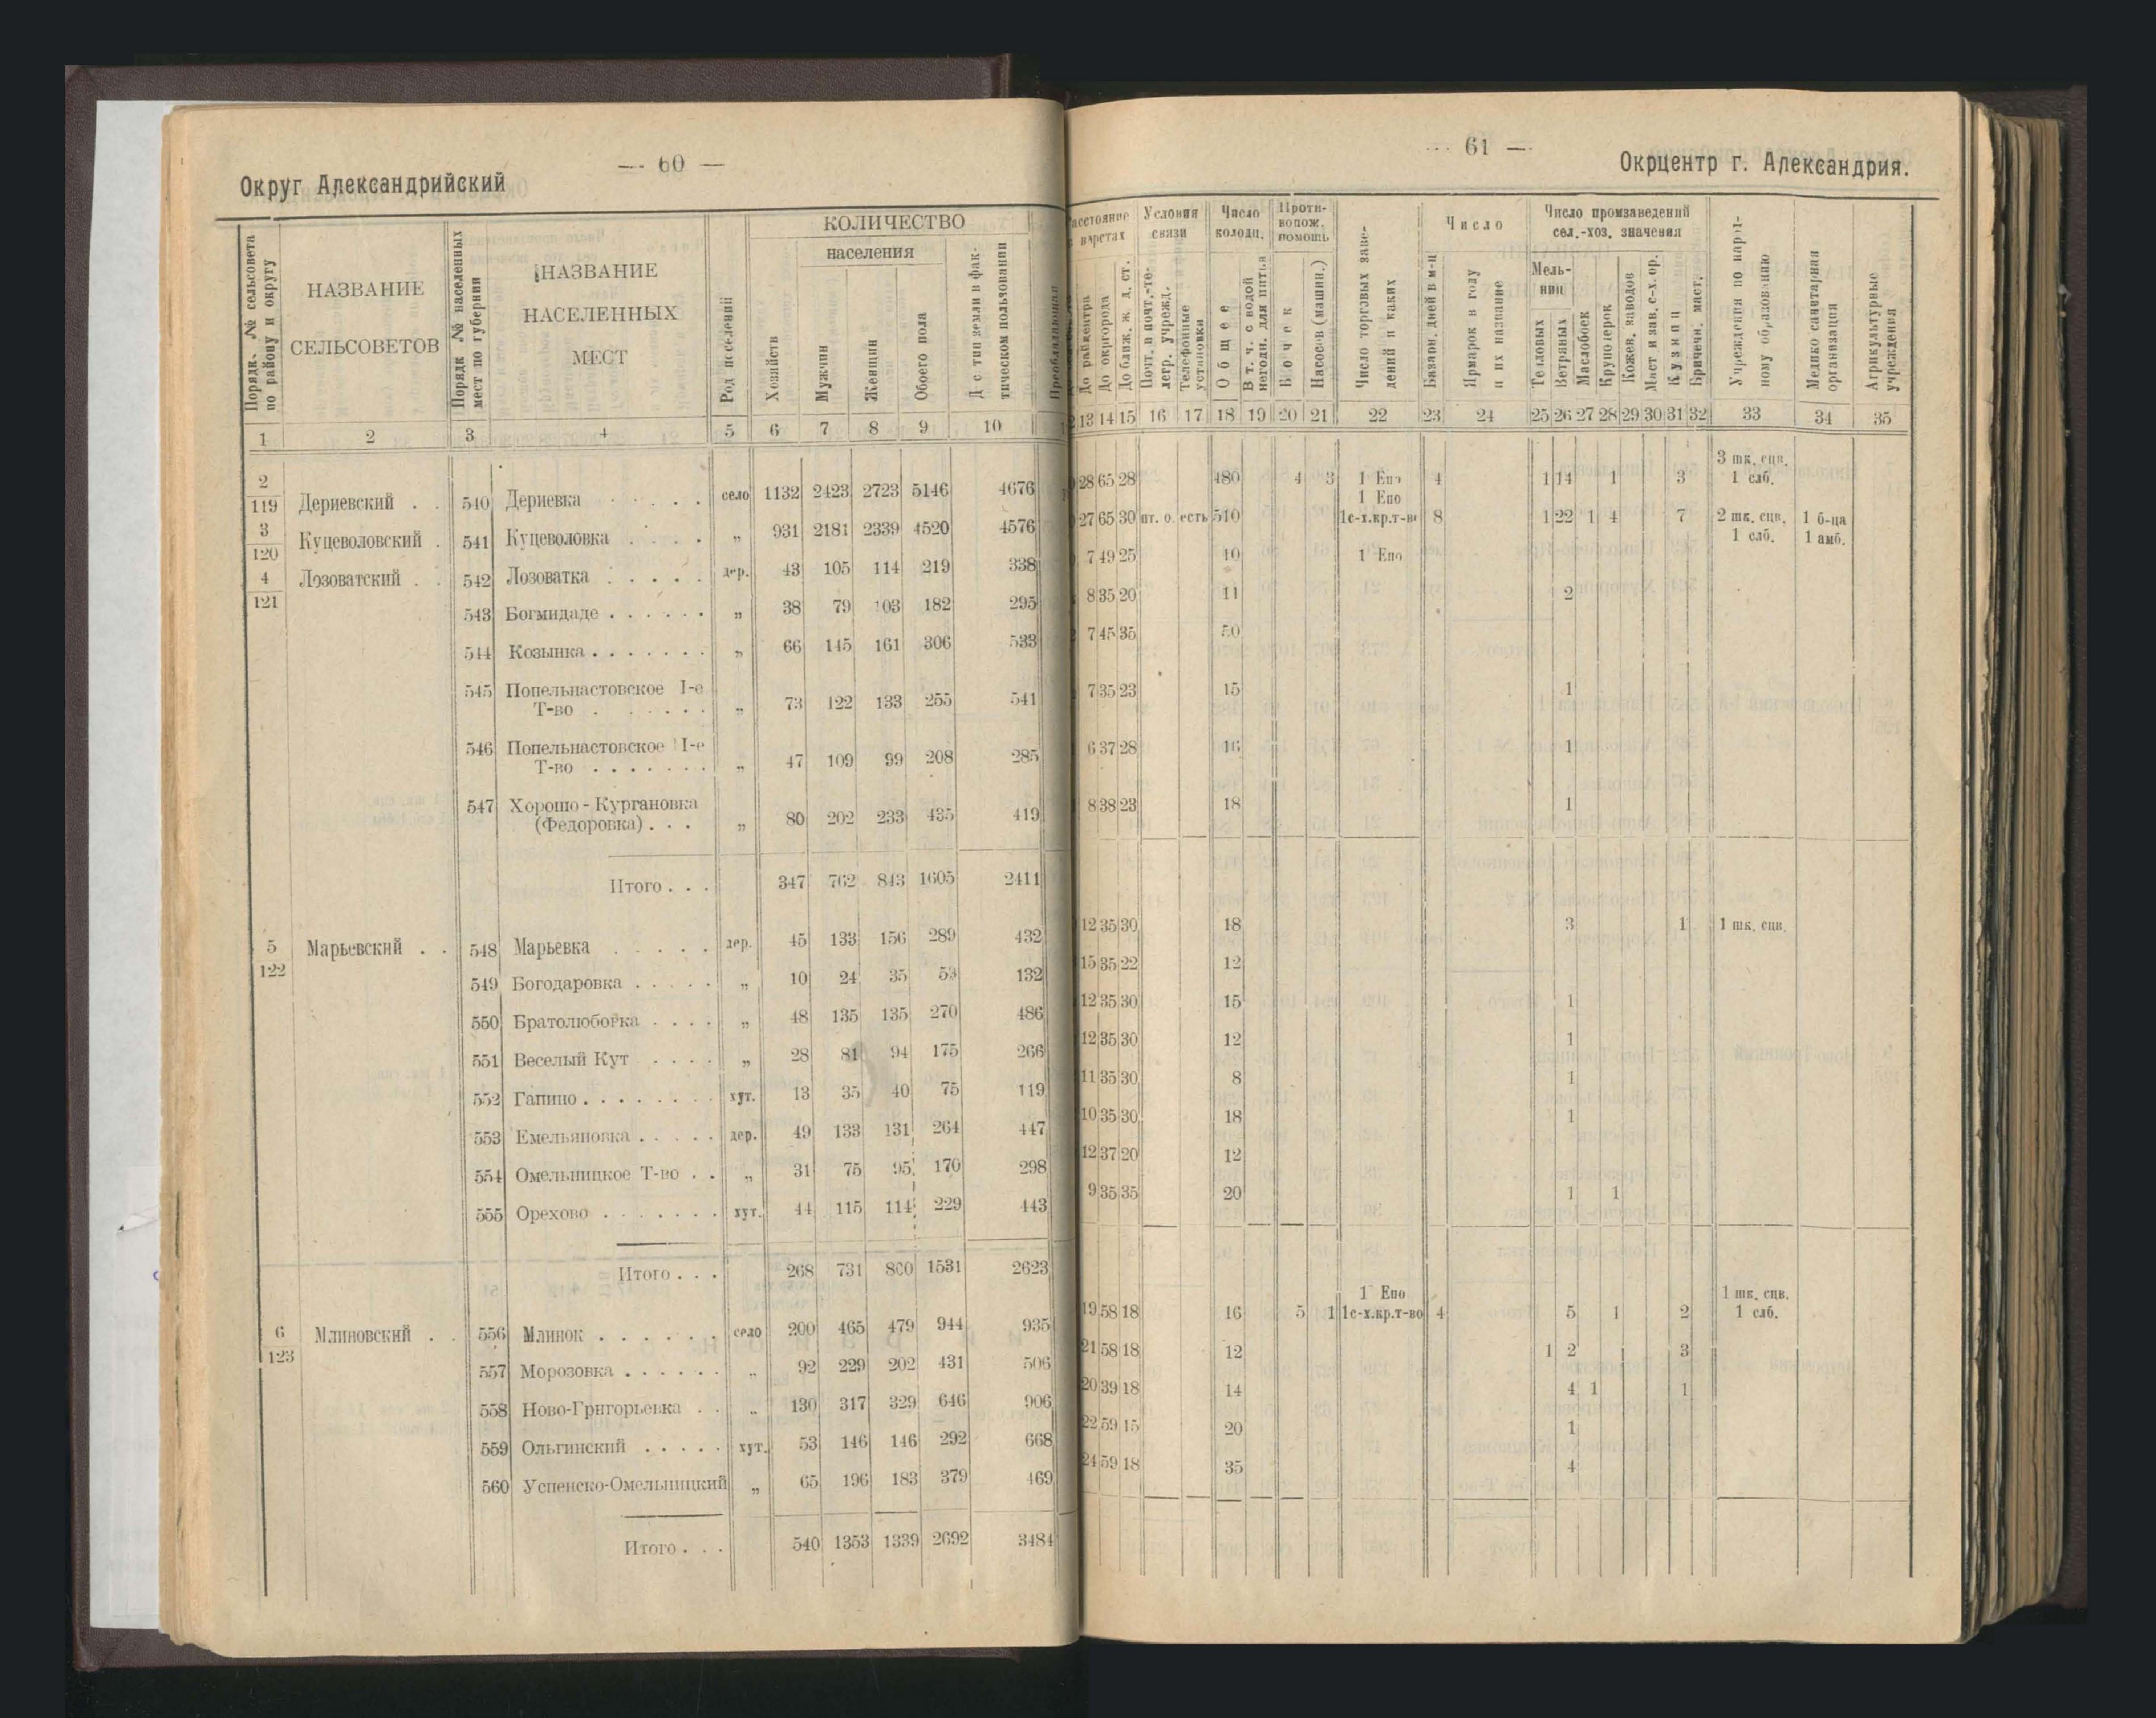 — 60 —
Округ Александрийский
Порядк. № сельсовета по району и округу
НАЗВАНИЕ СЕЛЬСОВЕТОВ
Порядк № населенных мест по губернии
НАЗВАНИЕ НАСЕЛЕННЫХ МЕСТ
Род поселений
КОЛИЧЕСТВО
населения
Хозяйств
Мужчин
Женщин
Обоего пола
Десятин земли в фактическом пользовании
1 2 3 4 5 6 7 8 9 10
2/119 Дериевский . . 540 Дериевка . . . . . село 1132 2423 2723 5146 4676
3/120 Куцеволовский . 541 Куцеволовка . . . . „ 931 2181 2339 4520 4576
4/121 Лозоватский . . 542 Лозоватка . . . . . дер. 43 105 114 219 338
543 Богмидаде . . . . . . „ 38 79 103 182 295
544 Козынка . . . . . . . „ 66 145 161 306 533
545 Попельнастовское I-е
Т-во . . . . . . „ 73 122 133 255 541
546 Попельнастовское II-е
Т-во . . . . . . . „ 47 109 99 208 285
547 Хорошо-Кургановка
(Федоровка) . . . „ 80 202 233 435 419
Итого . . . 347 762 843 1605 2411
5/122 Марьевский . . 548 Марьевка . . . . . дер. 45 133 156 289 432
549 Богодаровка . . . . . „ 10 24 35 59 132
550 Братолюбовка . . . . „ 48 135 135 270 486
551 Веселый Кут . . . . „ 28 81 94 175 266
552 Гапино . . . . . . . . хут. 13 35 40 75 119
553 Емельяновка . . . . . дер. 49 133 131 264 447
554 Омельницкое Т-во . . „ 31 75 95 170 298
555 Орехово . . . . . . . хут. 44 115 114 229 443
Итого . . . 268 731 800 1531 2623
6/123 Млиновский . . 556 Млинок . . . . . . село 200 465 479 944 935
557 Морозовка . . . . . . „ 92 229 202 431 506
558 Ново-Григорьевка . . „ 130 317 329 646 906
559 Ольгинский . . . . . хут. 53 146 146 292 668
560 Успенско-Омельницкий „ 65 196 183 379 469
Итого . . . 540 1353 1339 2692 3484
— 61 —
Окрцентр г. Александрия.
Расстояние в верстах
До райцентра
До окргорода
До ближ. ж. д. ст.
Условия связи
Почт. и почт.-телегр. учрежд.
Телефонные установки
Число колодц.
Общее
В т. ч. с водой негодн. для питья
Противопож. помощь
Бочек
Насосов (машин.)
Число торговых заведений и каких
Число
Базарн. дней в м-ц
Ярмарок в году и их название
Число промзаведений сел.-хоз. значения
Мельниц
Тепловых
Ветряных
Маслобоек
Крупорерок
Кожев. заводов
Маст и зав. с-х. ор.
Кузниц
Кирпичн. маст.
Учреждения по народному образованию
Медико санитарная организация
Агрикультурные учреждения
13 14 15 16 17 18 19 20 21 22 23 24 25 26 27 28 29 30 31 32 33 34 35
28 65 28 480 4 3 1 Епо 4 1 14 1 3 3 шк. сцв. 1 слб.
27 65 30 пт. о. есть 510 1 Епо 1с-х.кр.т-во 8 1 22 1 4 7 2 шк. сцв. 1 слб. 1 б-ца 1 амб.
7 49 25 10 1 Епо
8 35 20 11 2
7 45 35 50
7 35 23 15 1
6 37 28 16 1
8 38 23 18 1
12 35 30 18 3 1 1 шк. сцв.
15 35 22 12
12 35 30 15 1
12 35 30 12 1
11 35 30 8 1
10 35 30 18 1
12 37 20 12
9 35 35 20 1 1
19 58 18 16 5 1 1 Епо 1с-х.кр.т-во 4 5 1 2 1 шк. сцв. 1 слб.
21 58 18 12 1 2 3
20 39 18 14 4 1 1
22 59 15 20 1
24 59 18 35 4